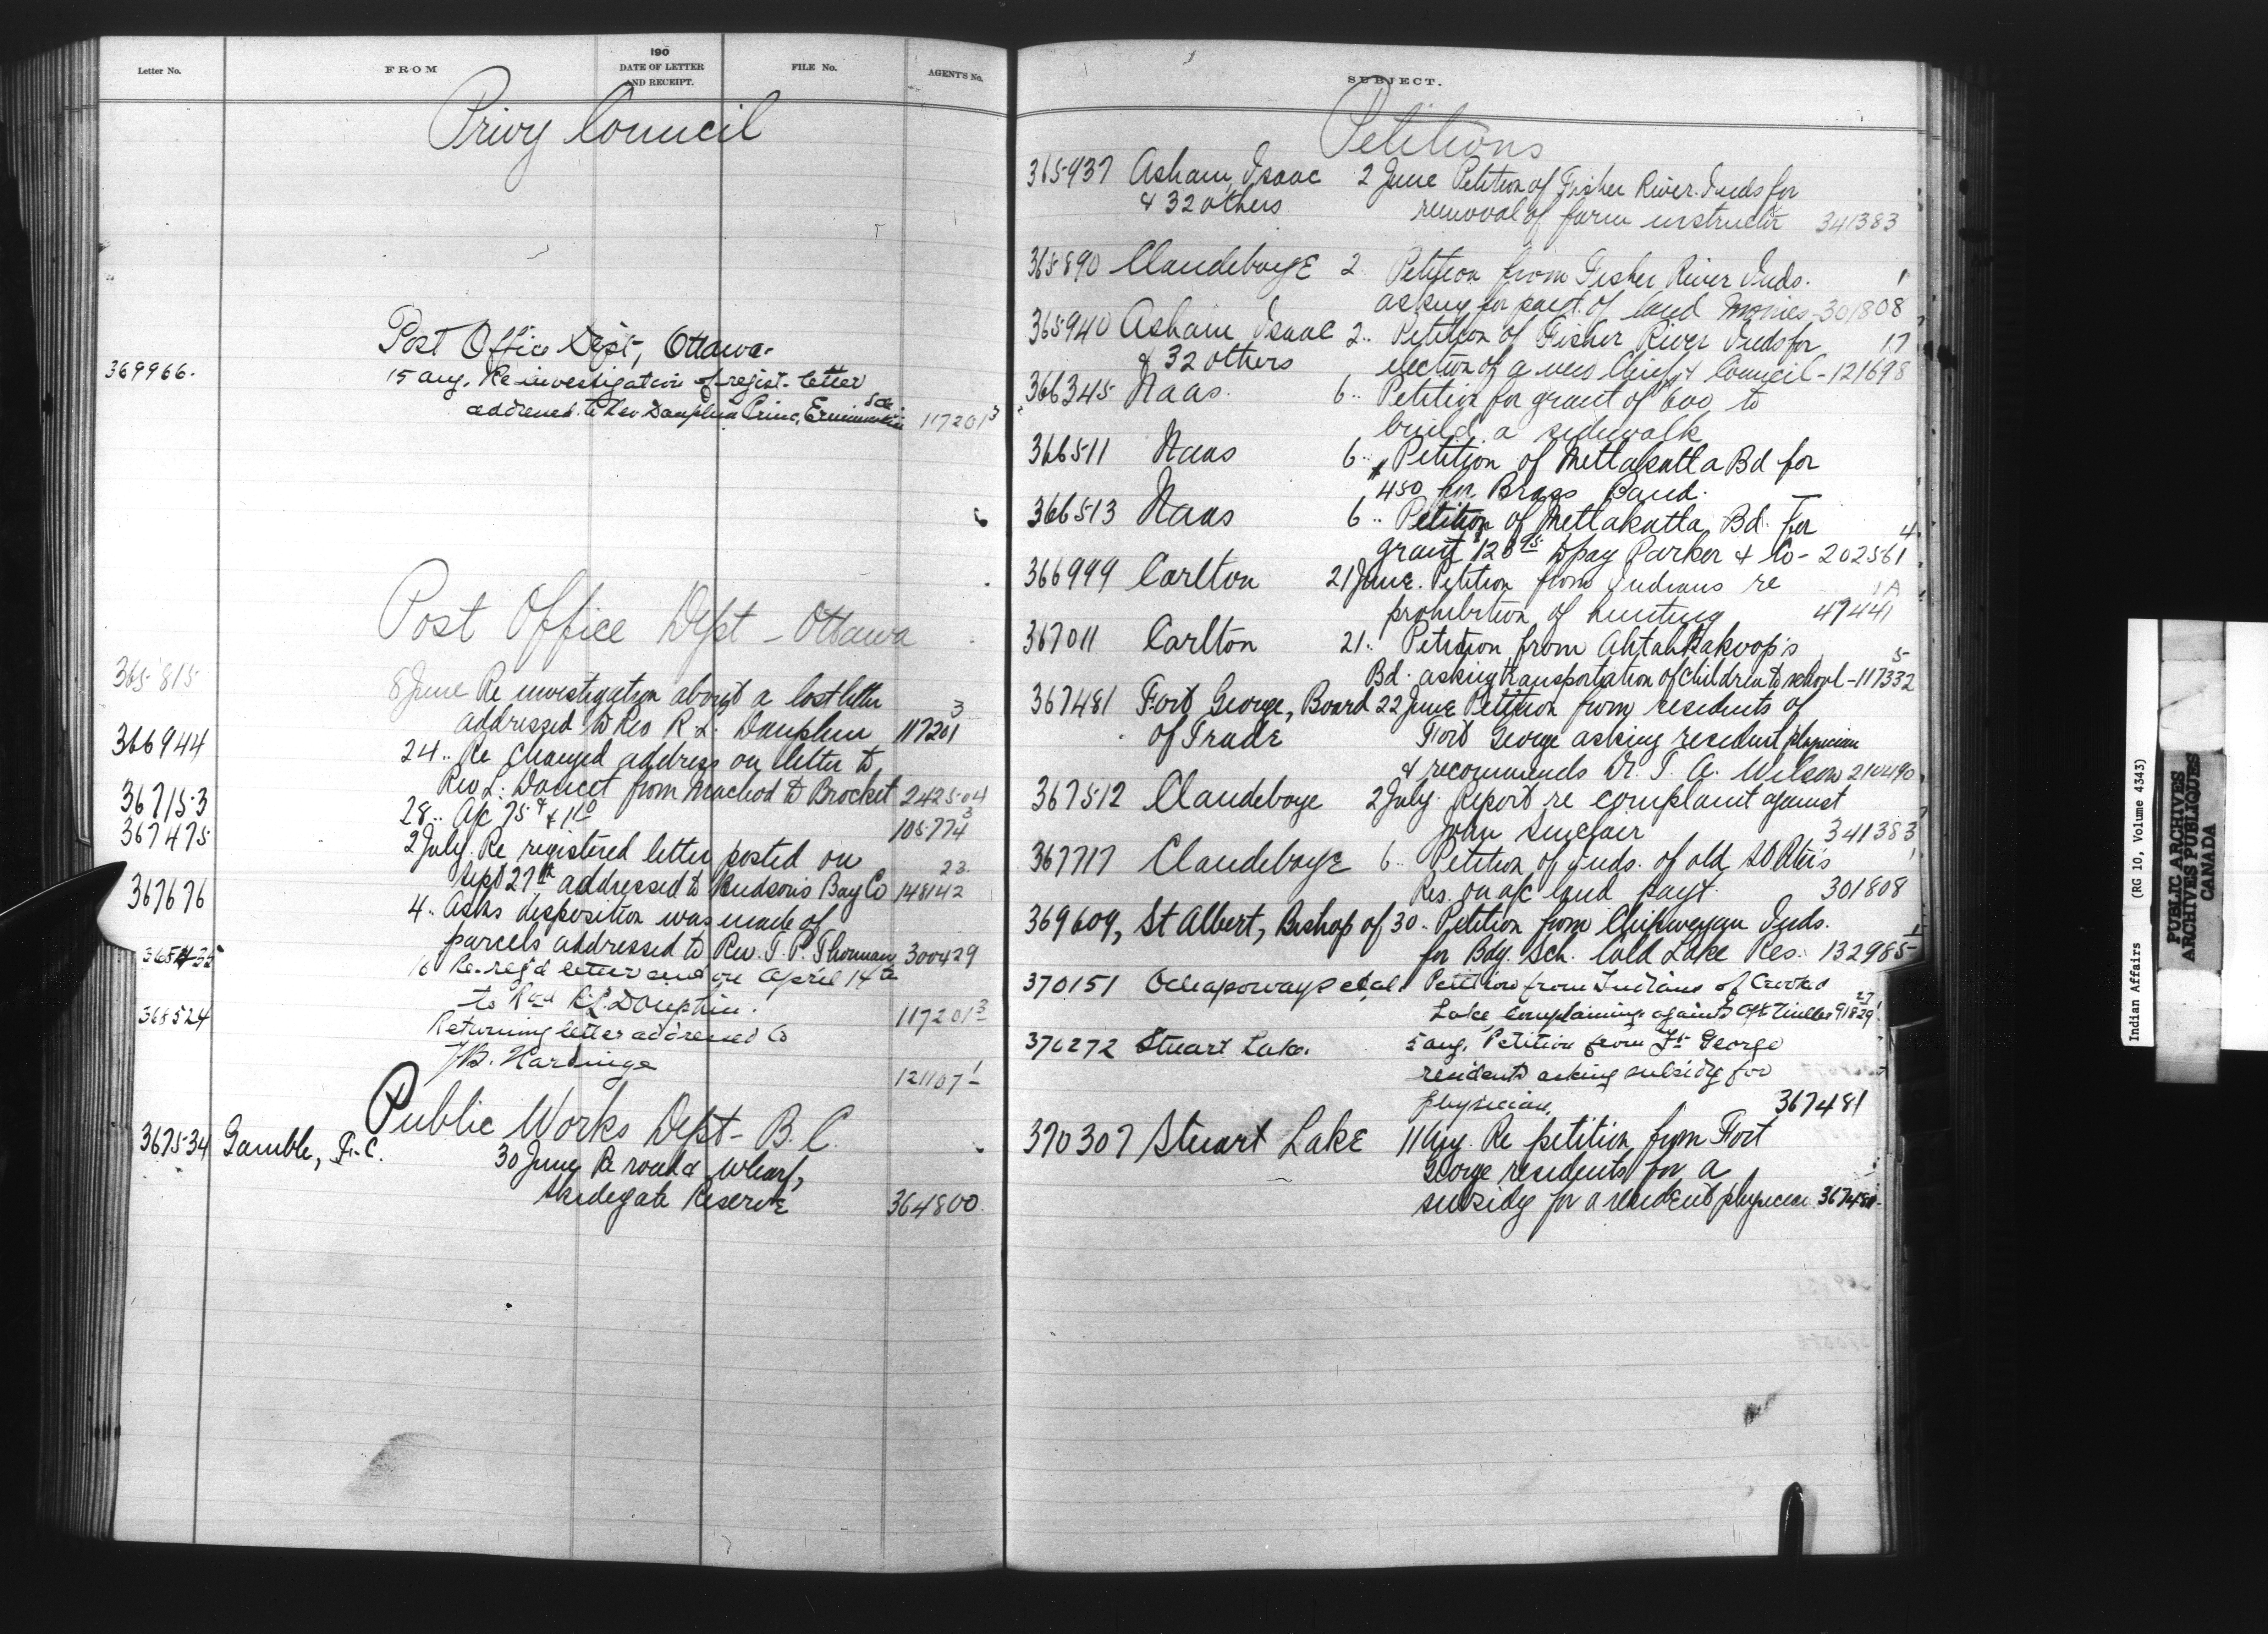 Letter No.
FROM
190
DATE OF LETTER
AND RECEIPT.
FILE No.
AGENT'S No.
Privy Council
Post Office Dept, Ottawa.
369966.
15 aug. Re investigation of regist. letter
addressed to Rev Dauphin Princ, Ermineskin Sch. 117201 3
Post Office Dept - Ottawa
365815
8 June Re investigation about a lost letter
addressed to Rev R. L. Dauphin 117201 3
366944
24 .. Re changed address on letter to
Rev L. Doucet from Macleod to Brocket 242504
367153
28 .. A/c 75 & 1
105774 3
367475
2 July. Re registered letter posted on
Sept 27th addressed to Hudson's Bay Co 148142 23.
367676
4 .. Asks disposition was made of
parcels addressed to Rev. T. P. Thorman 300429
16 Re reg'd letter sent on April 14th
to Rev R.L. Dauphin. 117201 3
368524
Returning letter addressed to
B. Hardinge
121107 1
Public Works Dept - B.C.
367534 Gamble, F. C.
30 June Re road & wharf,
Skidegate Reserve 364800.
SUBJECT.
Petitions
365937 Asham, Isaac 2 June Petition of Fisher River Inds for
& 32 others removal of farm instructor 341383
365890 Clandeboye 2. Petition from Fisher River Inds. 1
asking for payt. of land monies - 301808
365940 Asham Isaac 2.. Petition of Fisher River Inds for 17
& 32 others election of a new Chief & Council - 121698
366345 Naas. 6.. Petition for grant of 600 to
build a sidewalk
366511 Naas 6.. Petition of Metlakatla Bd for
$450 for Brass Band.
366513 Naas 6.. Petition of Metlakatla Bd. for 4
grant $128 95 to pay Parker & Co - 202561
366999 Carlton 21 June. Petition from Indians re 1A
prohibition of hunting 47441
367011 Carlton 21.. Petition from Ahtahkakoop's 5
Bd. asking transportation of children to school - 117332
367481 Fort George, Board 22 June Petition from residents of
of Trade Fort George asking resident physician
& recommends Dr. T. A. Wilson 210490
367512 Clandeboye 2 July. Report re complaint against
John Sinclair 341383
367717 Clandeboye 6.. Petition of Inds. of old St Peter's 1
Res. on a/c land payt. 301808
369609, St Albert, Bishop of 30.. Petition from Chipweyan Inds. 1
for Bdg. Sch. Cold Lake Res. 132985
370151 Ochapowayp et al. Petition from Indians of Crooked
Lake complaining against Agt Miller 91829 27
370272 Stuart Lake. 5 aug. Petition from Ft George
residents asking subsidy for
physician. 367481
370307 Stuart Lake 11 Aug. Re petition from Fort
George residents for a
subsidy for a resident physician 367481
Indian Affairs (RG 10, Volume 4343)
PUBLIC ARCHIVES
ARCHIVES PUBLIQUES
CANADA